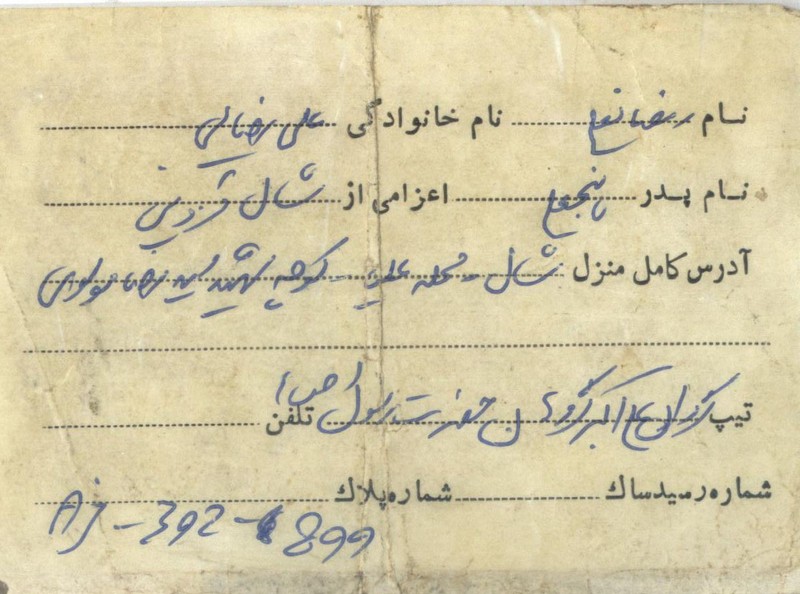 نام رمضانعلی نام خانوادگی علی رضائی
نام پدر پنجعلی اعزامی از شال قزوین
آدرس کامل منزل شال - محله علیا - کوچه شهید سید رضا موسوی
تیپ گردان علی اکبر گروهان حضرت رسول (ص) تلفن
شماره رسید ساک شماره پلاک
AJ-392-899